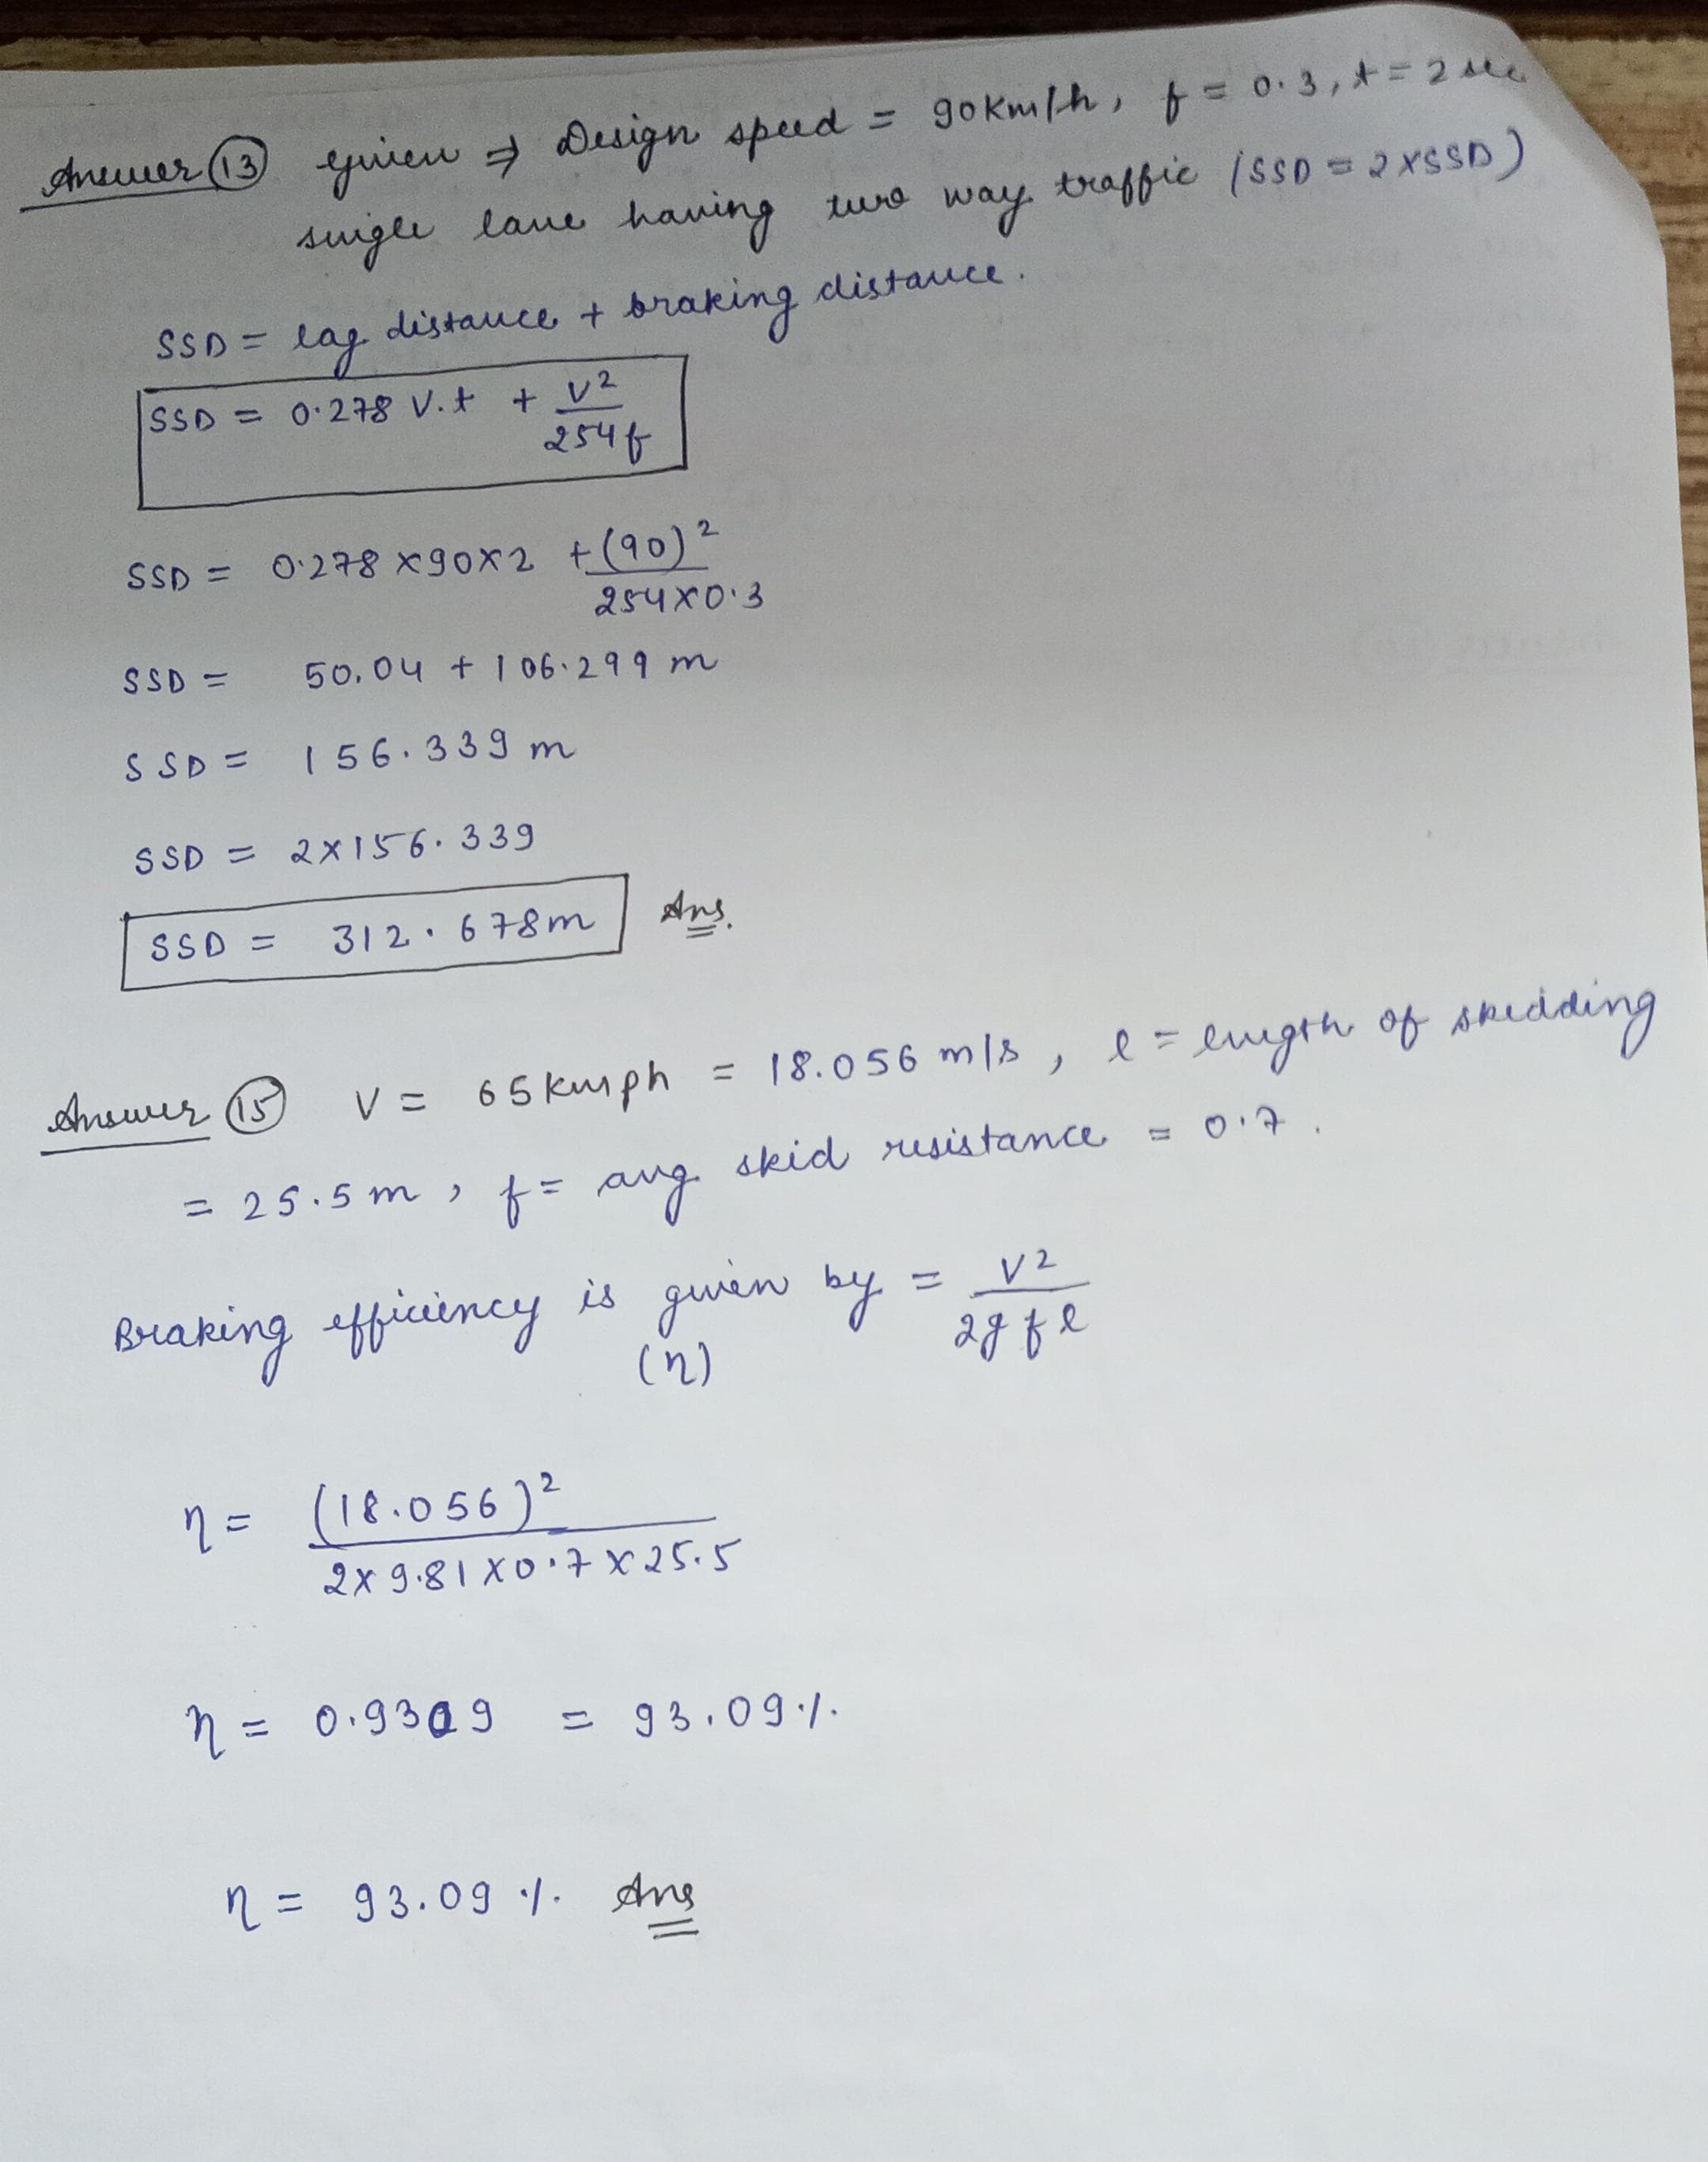 Answer (13) given ⇒ Design speed = 90km/h, f = 0.3, t = 2 sec
single lane having two way traffic (SSD = 2×SSD)
SSD = lag distance + braking distance.
SSD = 0.278 V.t + V²/254f
SSD = 0.278 ×90×2 + (90)²/254×0.3
SSD = 50.04 + 106.299 m
SSD = 156.339 m
SSD = 2×156.339
SSD = 312.678m Ans.
Answer (15) V = 65kmph = 18.056 m/s, l = length of skidding
= 25.5 m, f = avg. skid resistance = 0.7.
Braking efficiency is given by = V²/2g f l
(η)
η = (18.056)²/2×9.81×0.7×25.5
η = 0.9309 = 93.09%.
η = 93.09 %. Ans